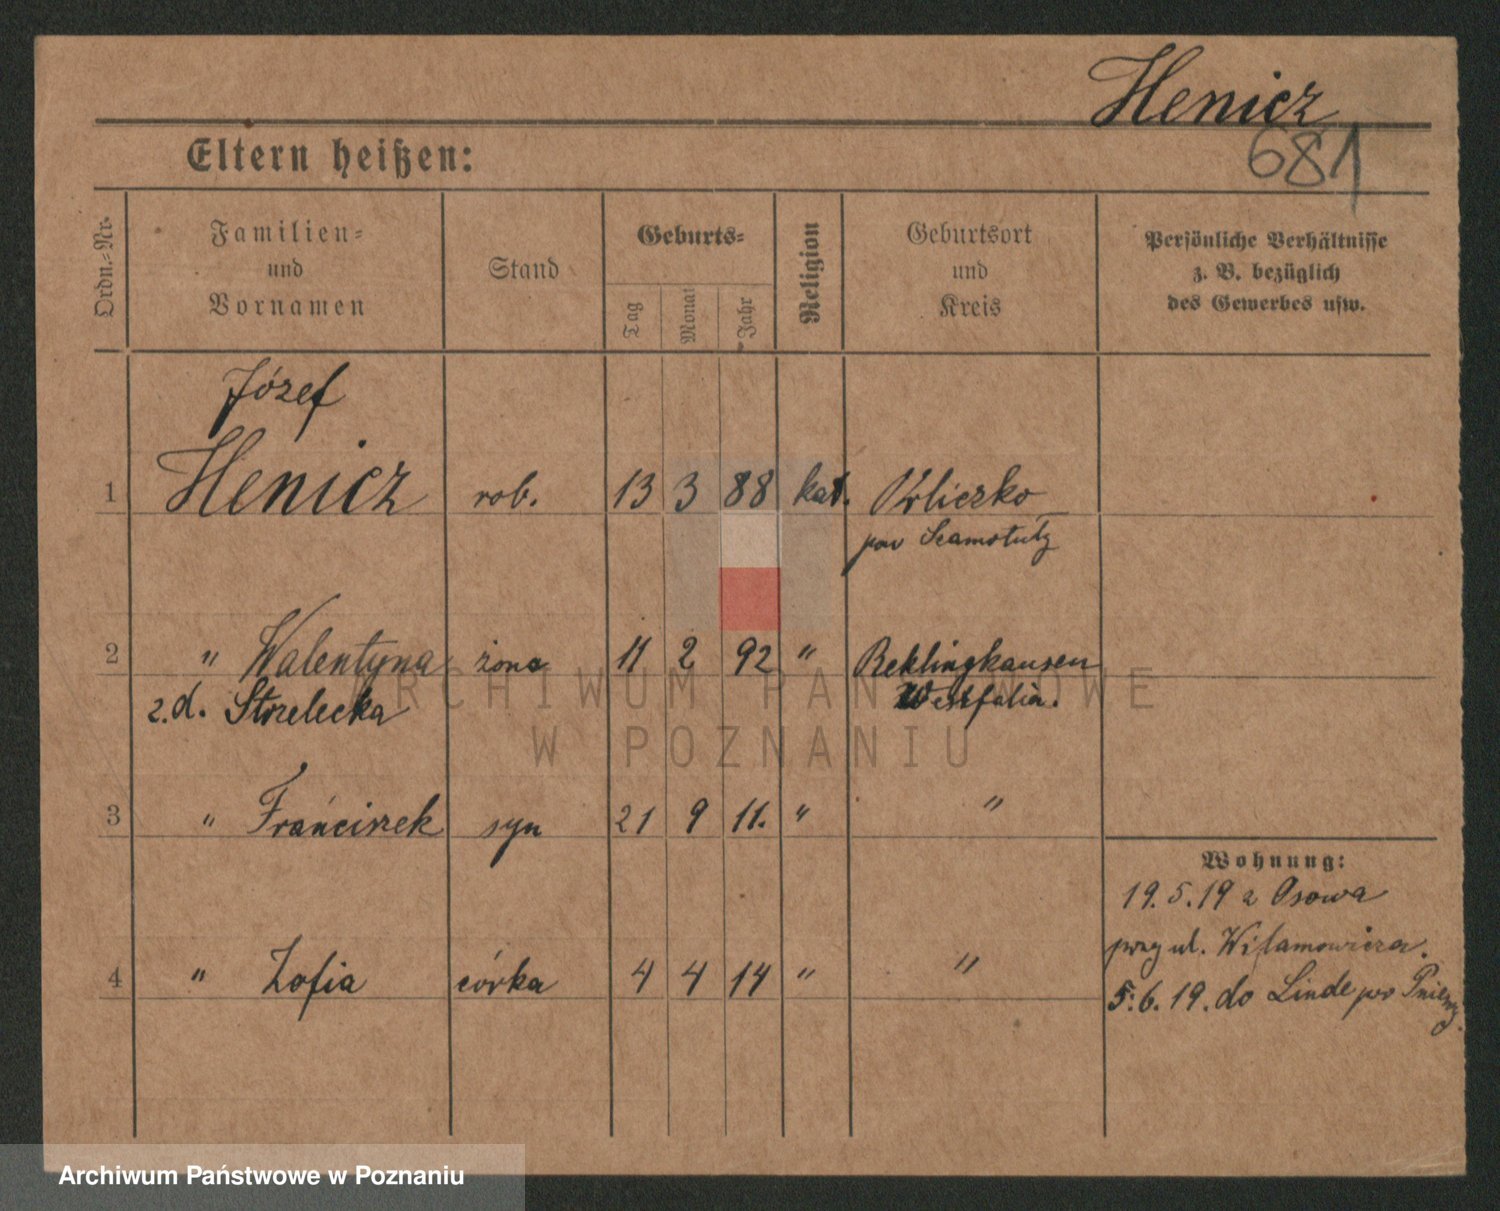 Henicz
681
Eltern heißen:
Ordn.-Nr.
Familien-
und
Vornamen
Stand
Geburts-
Tag
Monat
Jahr
Religion
Geburtsort
und
Kreis
Persönliche Verhältnisse
z. B. bezüglich
des Gewerbes usw.
Józef
1 Henicz rob. 13 3 88 kat.
pow
2 " Walentyna żona 11 2 92 " Reklinghausen
z.d. Strzelecka Westfalia.
3 " Franciszek syn 21 9 11. " "
Wohnung:
19.5.19 z Osowa
przy ul.
4 " Zofia córka 4 4 14 " "
5.6.19. do Linde pow Pniewy.
ARCHIWUM PAŃSTWOWE
W POZNANIU
Archiwum Państwowe w Poznaniu